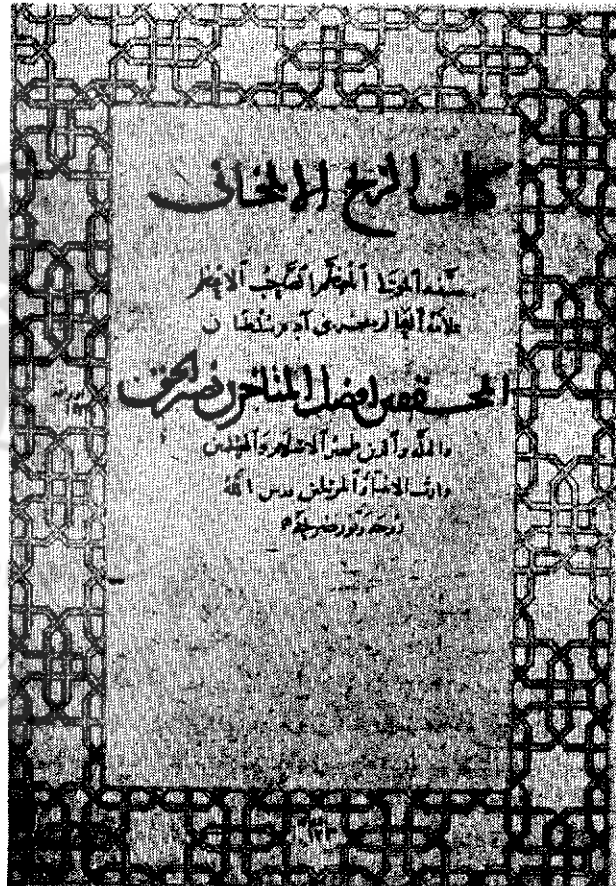 كتاب الزيج الإيلخاني
صنفه المولى المعظم الصاحب الأعظم
علامة العالم سلطان
المحققين افضل المتاخرين نصير الحق
والملة والدين الاسلام والمسلمين
وارث الانبيا والمرسلين قدس الله
روحه ونور ضريحه